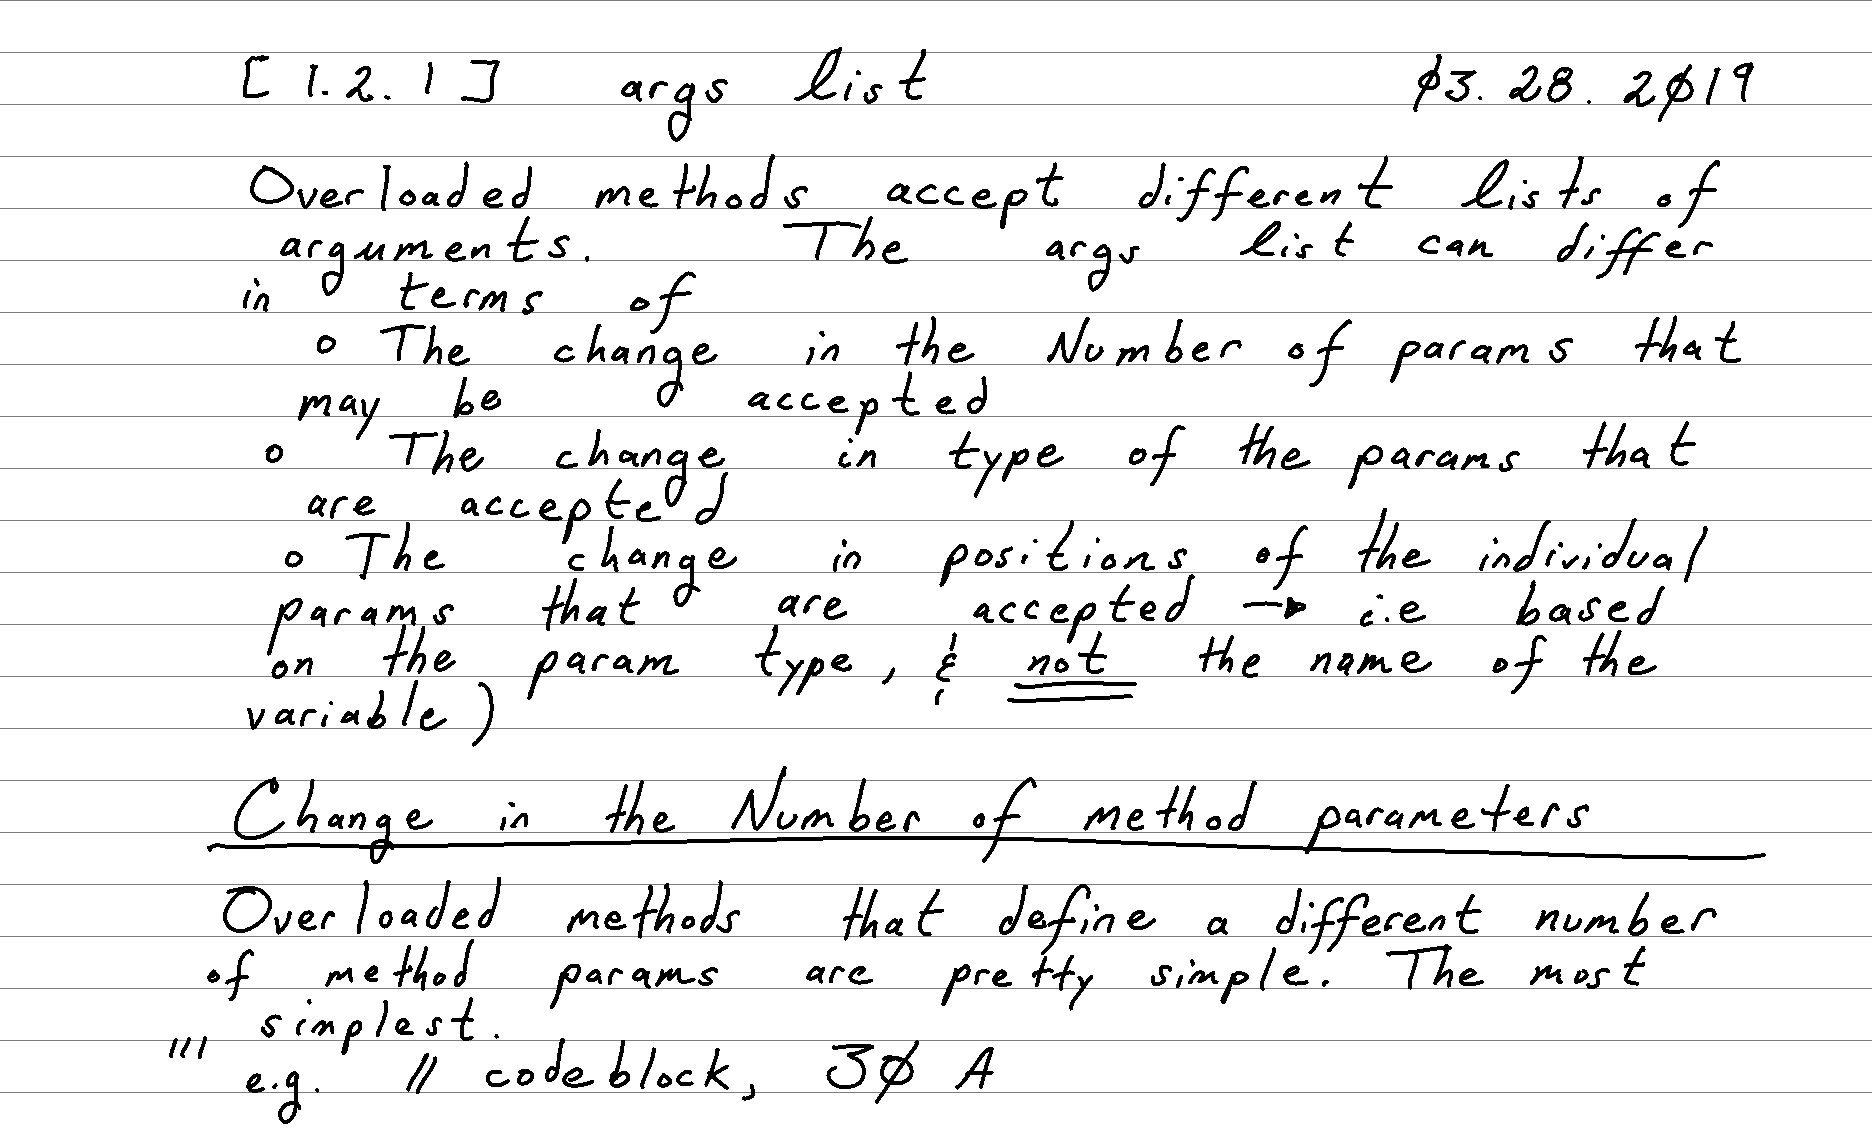 [ 1.2.1 ] args list 03.28.2019
Overloaded methods accept different lists of
arguments. The args list can differ
in terms of
o The change in the Number of params that
may be accepted
o The change in type of the params that
are accepted
o The change in positions of the individual
params that are accepted → i.e based
on the param type, & not the name of the
variable)
Change in the Number of method parameters
Overloaded methods that define a different number
of method params are pretty simple. The most
simplest.
''' e.g. // codeblock, 30 A